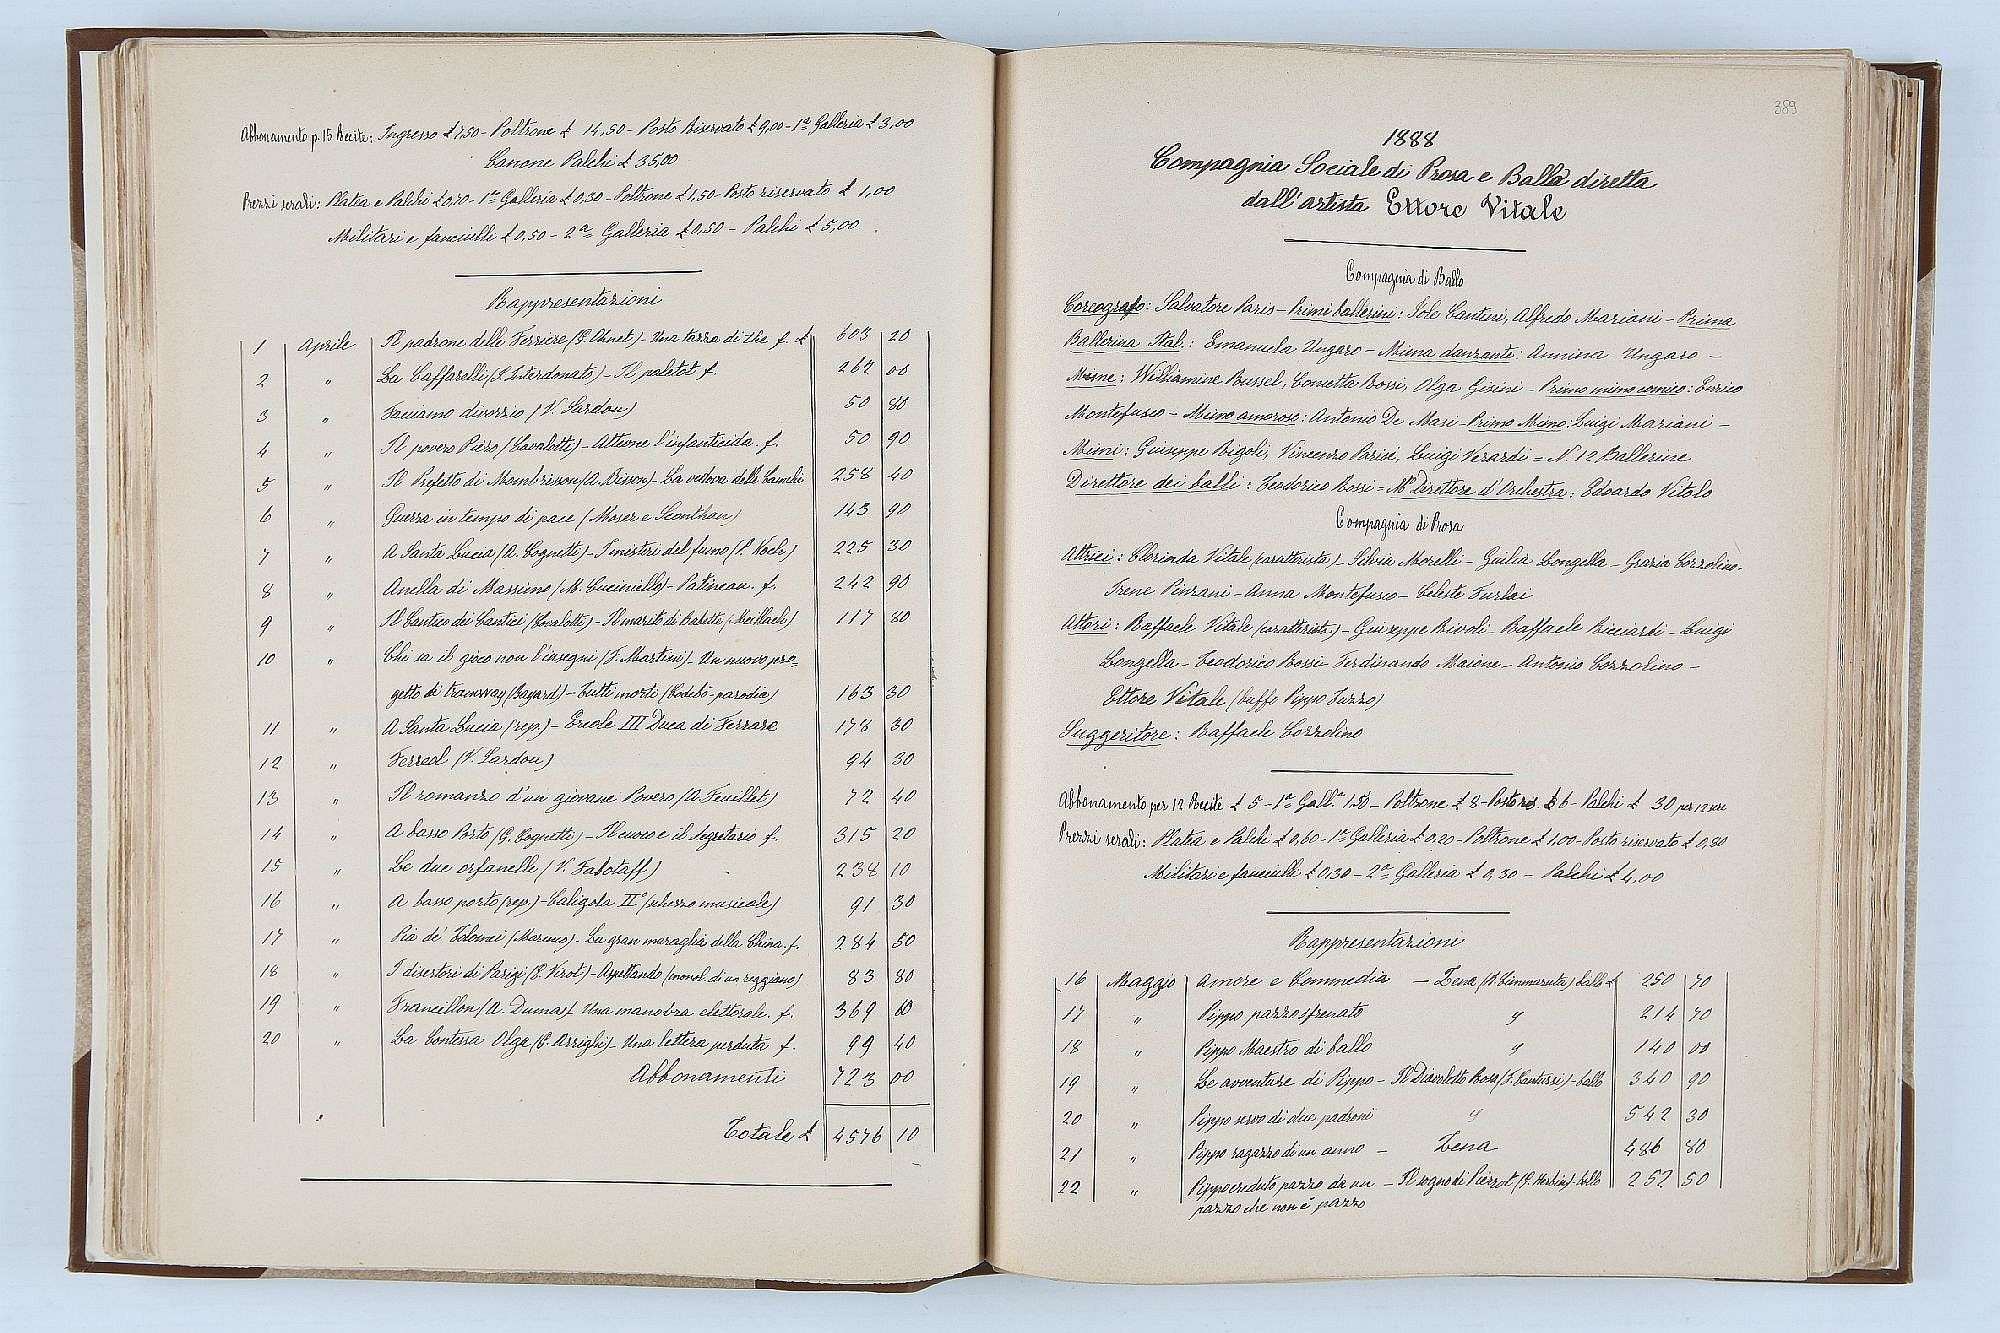 Abbonamento p. 15 Recite: Ingresso £ 7,50 - Poltrone £ 14,50 - Posto Riservato £ 9,00 - 1ª Galleria £ 3,00
Canone Palchi £ 35,00
Prezzi serali: Platea e Palchi £ 0,70 - 1ª Galleria £ 0,30 - Poltrone £ 1,50 - Posto riservato £ 1,00
Militari e fanciulli £ 0,50 - 2ª Galleria £ 0,50 - Palchi £ 5,00
Rappresentazioni
1 Aprile Il padrone delle Ferriere (G. Ohnet) - Una tazza di the f. £ 603 20
2 " La Caffarelli (P. Interdonato) - Il paletot f. 267 00
3 " Facciamo divorzio (V. Sardou) 50 80
4 " Il povero Piero (Cavalotti) - Attienne l'infanticida f. 50 90
5 " Il Prefetto di Mombrisson (A. Bisson) - La vedova delle Camelie 258 40
6 " Guerra in tempo di pace (Moser e Sconthan) 143 90
7 " A Santa Lucia (A. Cognetti) - I misteri del fumo (P. Koch) 225 30
8 " Anella di Massimo (M. Cuciniello) - Patineau f. 242 90
9 " Il Cantico dei Cantici (Cavalotti) - Il marito di Babette (Meilhach) 117 80
10 " Chi sa il gioco non l'insegni (F. Martini) - Un nuovo pro-
getto di tramway (Bayard) - Tutti morti (Codebò - parodia) 163 30
11 " A Santa Lucia (rep.) - Ercole III Duca di Ferrara 178 30
12 " Ferreol (V. Sardou) 94 30
13 " Il romanzo d'un giovane Povero (A. Feuillet) 72 40
14 " A basso Porto (G. Cognetti) - Il cuoco e il segretario f. 315 20
15 " Le due orfanelle (V. Fabotaff) 238 10
16 " A basso porto (rep.) - Caligola IIº (scherzo musicale) 91 30
17 " Pia de' Tolomei (Marenco) - La gran muraglia della China f. 284 50
18 " I disertori di Parigi (P. Virot) - Aspettando (monol. di un reggiano) 83 80
19 " Francillon (A. Dumas) - Una manovra elettorale f. 369 60
20 " La Contessa Olga (C. Arrighi) - Una lettera perduta f. 99 40
Abbonamenti 723 00
Totale £ 4576 10
389
1888
Compagnia Sociale di Prosa e Ballo diretta
dall'artista Ettore Vitale
Compagnia di Ballo
Coreografo: Salvatore Paris - Primi ballerini: Iole Cantusi, Alfredo Mariani - Prima
Ballerina Ital.: Emanuela Ungaro - Mima danzante: Annina Ungaro -
Mime: Williamine Bussel, Cometta Bossi, Olga Gisini - Primo mimo comico: Enrico
Montefusco - Mimo amoroso: Antonio De Masi - Primo Mimo: Luigi Mariani -
Mimi: Giuseppe Rigoli, Vincenzo Parisi, Luigi Verardi = N 12 Ballerine
Direttore dei balli: Teodorico Rossi = Mº Direttore d'Orchestra: Edoardo Vitolo
Compagnia di Prosa
Attrici: Clorinda Vitale (caratterista) - Silvia Morelli - Giulia Longella - Grazia Cozzolino -
Irene Penzani - Anna Montefusco - Celeste Furlai
Attori: Raffaele Vitale (caratterista) - Giuseppe Rivoli - Raffaele Ricciardi - Luigi
Longella - Teodorico Rossi - Ferdinando Maione - Antonio Cozzolino -
Ettore Vitale (buffo Pippo Tuzzo)
Suggeritore: Raffaele Cozzolino
Abbonamento per 12 Recite £ 5 - 1ª Gall.ª 1.50 - Poltrone £ 8 - Posto ris £ 6 - Palchi £ 30 per 12 sere
Prezzi serali: Platea e Palchi £ 0,60 - 1ª Galleria £ 0,20 - Poltrone £ 1,00 - Posto riservato £ 0,80
Militari e fanciulli £ 0,30 - 2ª Galleria £ 0,30 - Palchi £ 4,00
Rappresentazioni
16 Maggio Amore e Commedia - Zena (R. Cimmaruta) ballo £ 250 70
17 " Pippo pazzo sfrenato " 214 70
18 " Pippo Maestro di ballo " 140 00
19 " Le avventure di Pippo - Il Diavoletto Rosa (F. Cantussi) - ballo 340 90
20 " Pippo servo di due padroni " 542 30
21 " Pippo ragazzo di un anno - Zena 486 80
22 " Pippo creduto pazzo da un - Il sogno di Pierrot (P. Herbin) - ballo 252 50
pazzo che non è pazzo